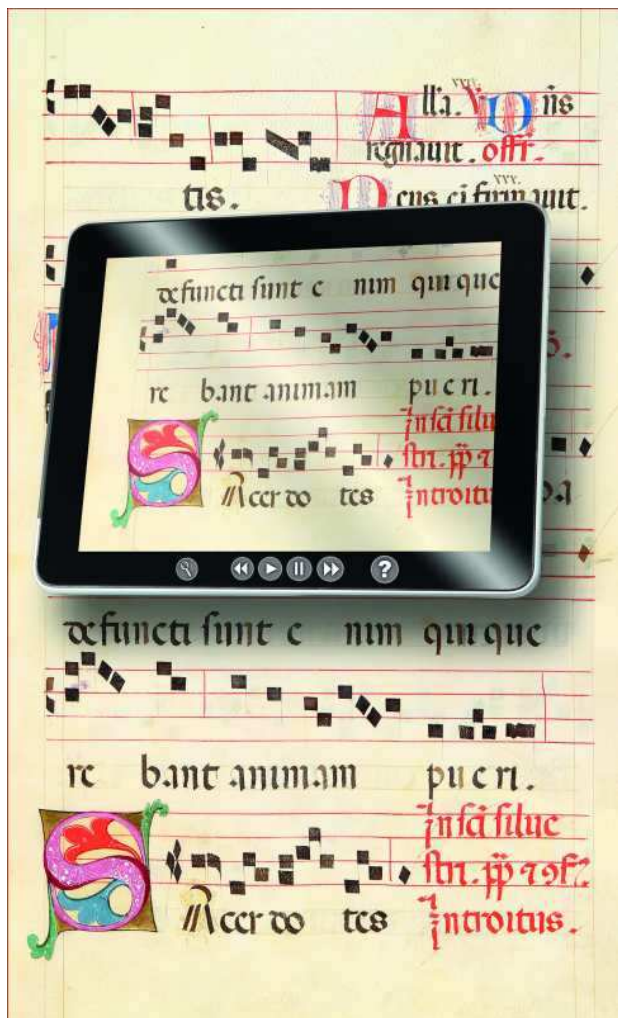 Alla. V Dns
regnauit. offr.
tis. Deus eī firmauit.
defuncti sunt e nim qui que
re bant animam pu e ri.
In sci silu
stri. pp 7
SAcer do tes Introitu
?
defuncti sunt e nim qui que
re bant animam pu e ri.
In sci silue
stri. pp 7 9f.
SAcer do tes Introitus.